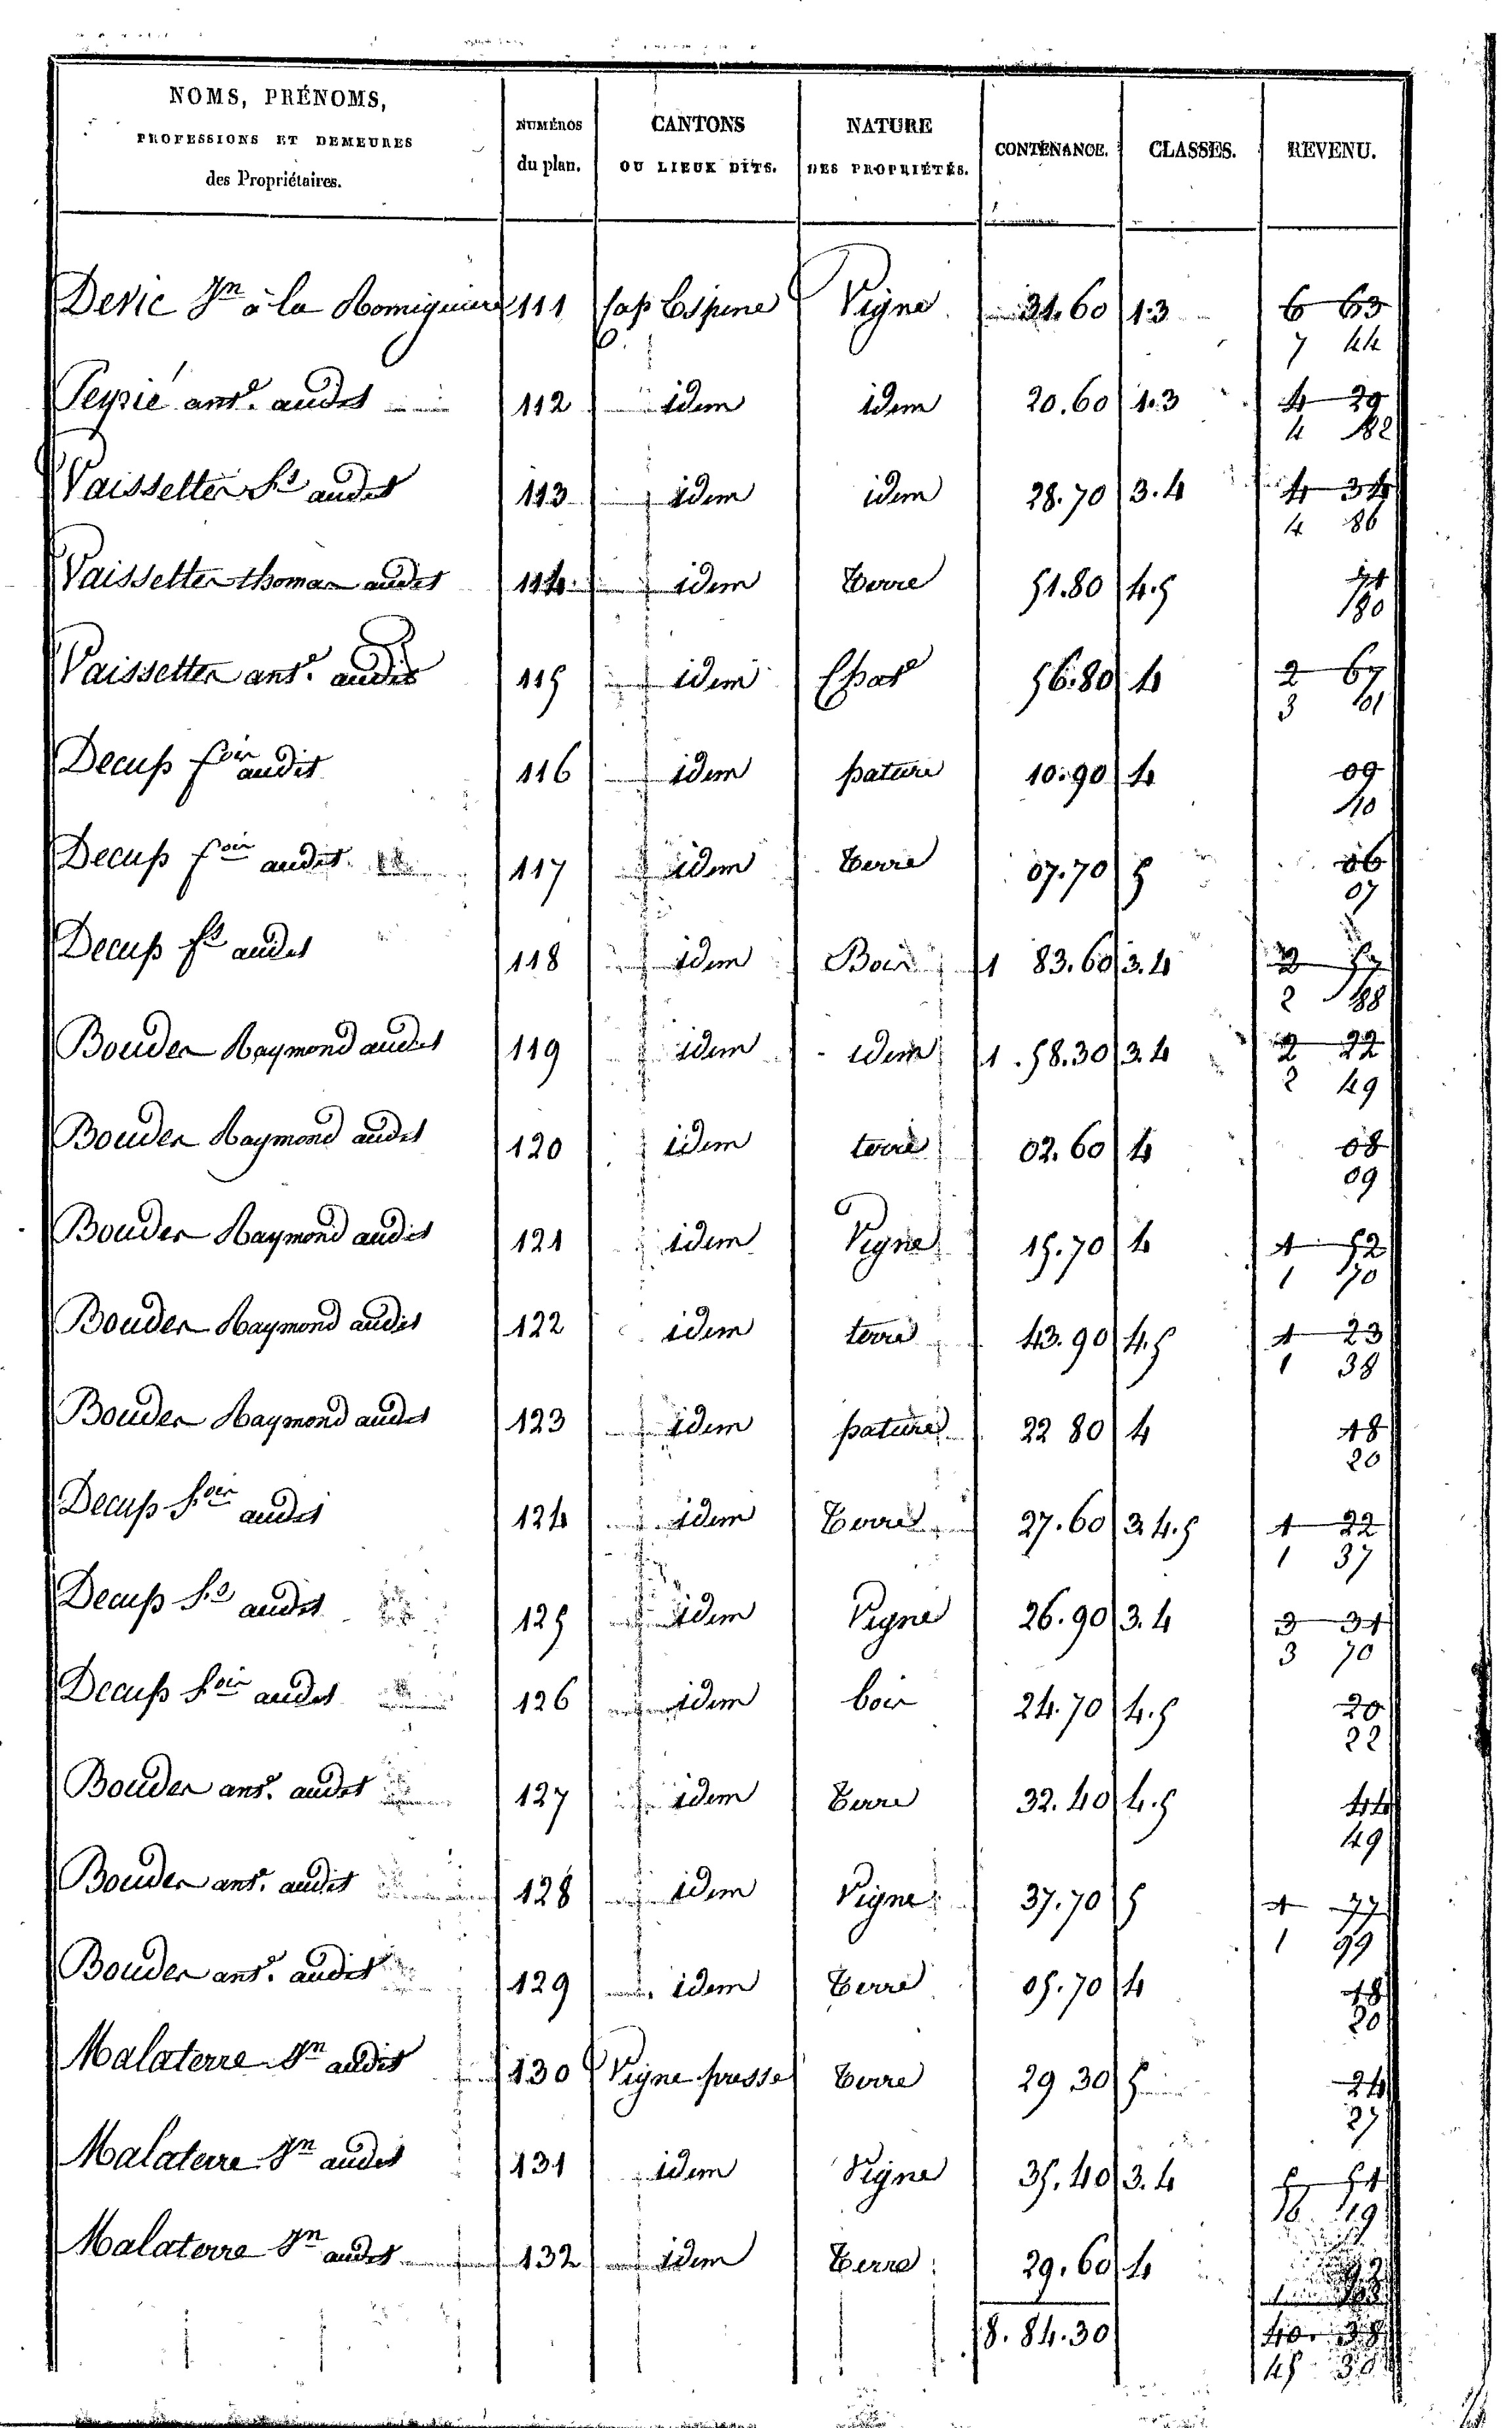 NOMS, PRÉNOMS, PROFESSIONS ET DEMEURES des Propriétaires. NUMÉROS du plan. CANTONS OU LIEUX DITS. NATURE DES PROPRIÉTÉS. CONTENANCE. CLASSES. REVENU.
Deric Jn à la Romiguiere 111 Cap Espine Vigne 31.60 1.3 6 63
7 44
Peyrié ant.e audit 112 idem idem 20.60 1.3 4 29
4 82
Vaissettes audit 113 idem idem 28.70 3.4 4 34
4 86
Vaissettes thomas audit 114 idem terre 51.80 4.5 71
80
Vaissettes ant.e audit 115 idem 56.80 4 2 67
3 01
Decups foir audit 116 idem pature 10.90 4 09
10
Decups foir audit 117 idem terre 07.70 5 06
07
Decups audit 118 idem Bois 1 83.60 3.4 2 57
2 88
Boudes Raymond audit 119 idem idem 1 58.30 3.4 2 22
2 49
Boudes Raymond audit 120 idem terre 02.60 4 08
09
Boudes Raymond audit 121 idem Vigne 15.70 4 1 52
1 70
Boudes Raymond audit 122 idem terre 43.90 4.5 1 23
1 38
Boudes Raymond audit 123 idem pature 22 80 4 18
20
Decups foir audit 124 idem terre 27.60 3.4.5 1 22
1 37
Decups audit 125 idem Vigne 26.90 3.4 3 31
3 70
Decups foir audit 126 idem bois 24.70 4.5 20
22
Boudes ant.e audit 127 idem terre 32.40 4.5 44
49
Boudes ant.e audit 128 idem Vigne 37.70 5 1 77
1 99
Boudes ant.e audit 129 idem terre 05.70 4 18
20
Malaterre Jn audit 130 Vigne presse terre 29 30 5 24
27
Malaterre Jn audit 131 idem Vigne 35.40 3.4 5 51
6 19
Malaterre Jn audit 132 idem terre 29.60 4
8.84.30 40. 38
45